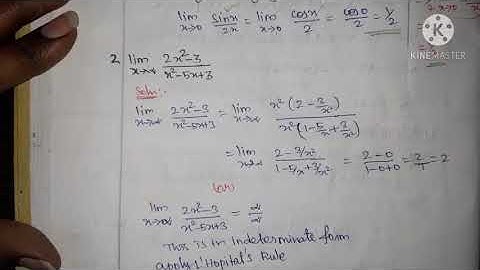 lim x→0 sinx/2x = lim x→0 cosx/2 = cos0/2 = 1/2
KINEMASTER
2. lim x→∞ 2x²-3/x²-5x+3
Soln:-
lim x→∞ 2x²-3/x²-5x+3 = lim x→∞ x²(2-3/x²)/x²(1-5/x+3/x²)
= lim x→∞ 2-3/x²/1-5/x+3/x² = 2-0/1-0+0 = 2/1 = 2
(or)
lim x→∞ 2x²-3/x²-5x+3 = ∞/∞
This is in indeterminate form
apply L'Hopital's Rule